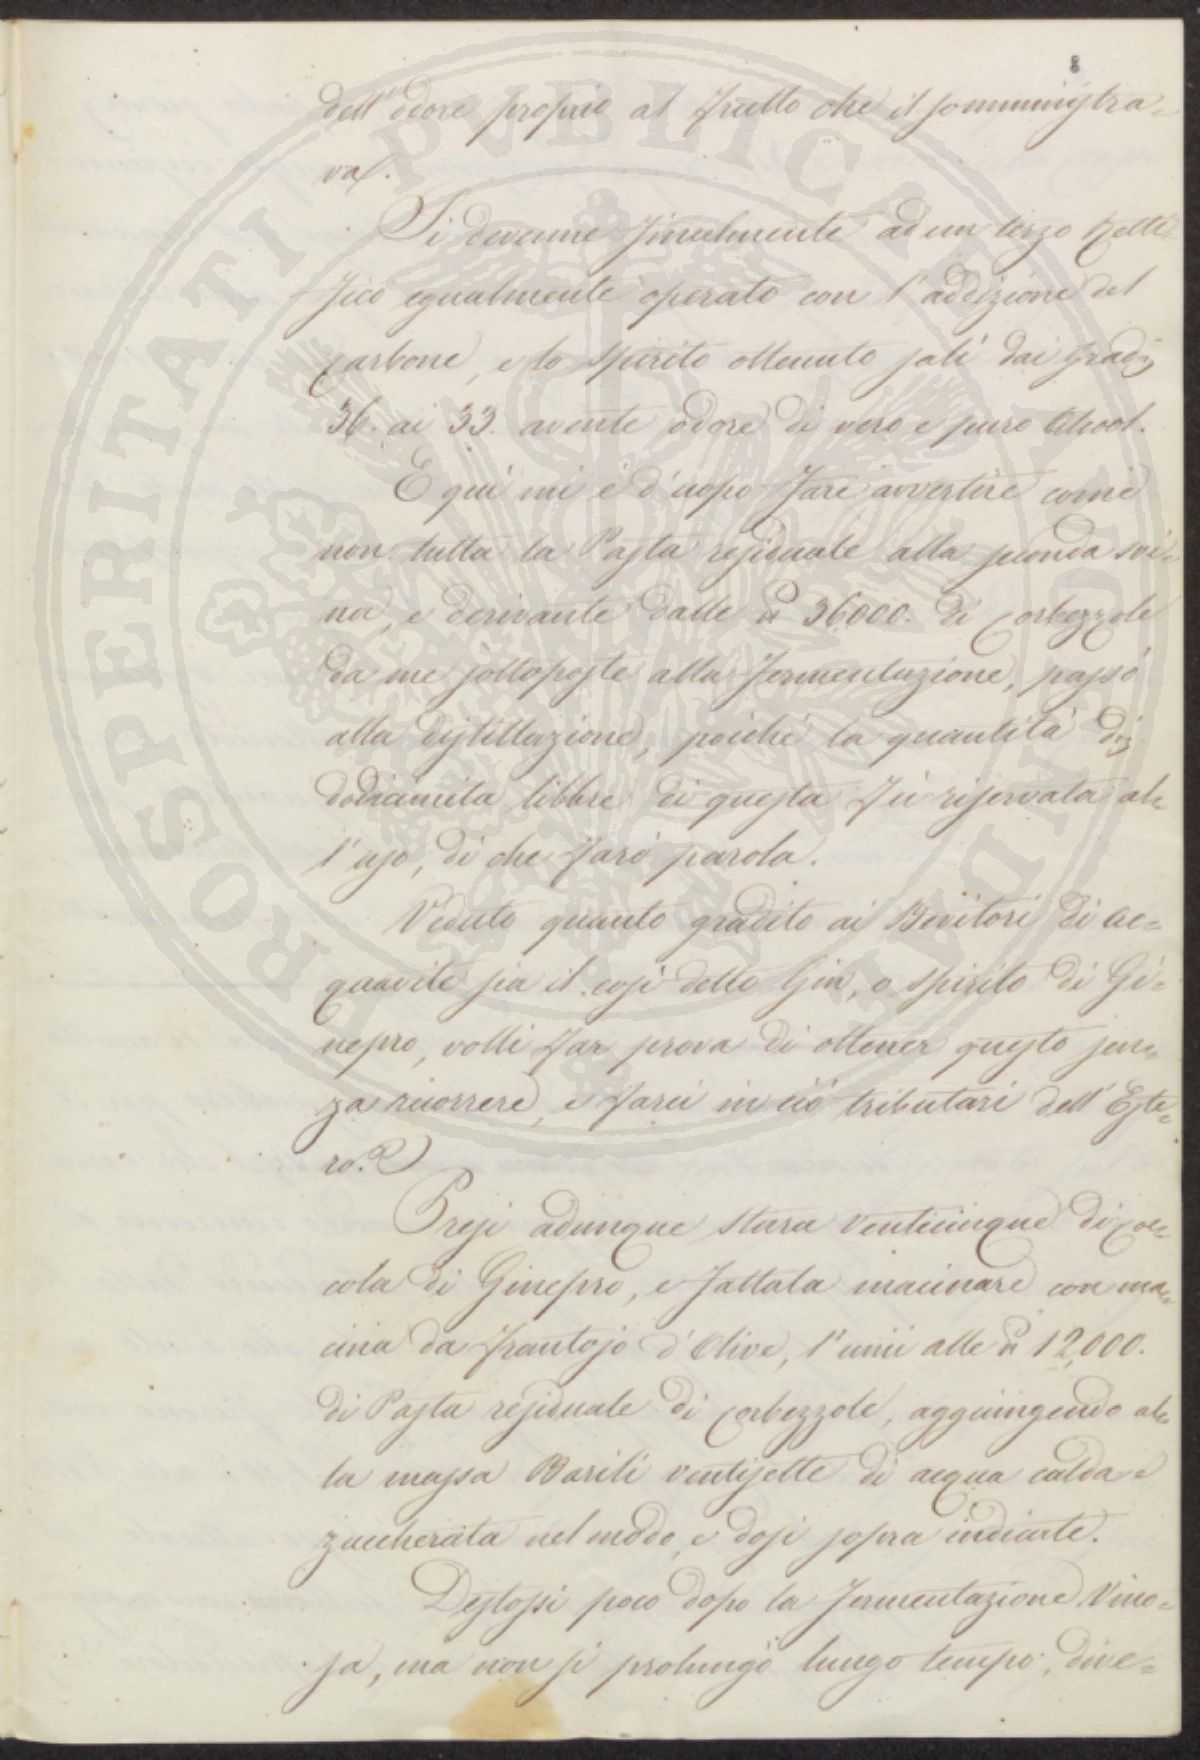 8
dell'odore proprio al frutto che il somministra-
va.
Si devenne finalmente ad un terzo Retti-
fico egualmente operato con l'addizione del
carbone, e lo spirito ottenuto salì dai gradi
36. ai 33. avente odore di vero e puro Alcool.
E qui mi è d'uopo fare avvertire come
non tutta la Pasta residuale alla seconda svi-
na, e derivante dalle 36,000. di Corbezzole
da me sottoposte alla fermentazione, passò
alla distillazione, poiché la quantità di
dodicimila libbre di questa fu riservata al-
l'uso, di che farò parola.
Veduto quanto gradito ai Bevitori di Ac-
quavite sia il così detto Gin, o spirito di Gi-
nepro, volli far prova di ottener questo sen-
za ricorrere, e farci in ciò tributari dell'Este-
ro.
Presi adunque stara venticinque di Coc-
cola di Ginepro, e fattala macinare con ma-
cina da frantojo d'Olive, l'unii alle 12,000.
di Pasta residuale di Corbezzole, aggiungendo al-
la massa Barili ventisette di acqua calda e
zuccherata nel modo, e dosi sopra indicate.
Destossi poco dopo la fermentazione Vino-
sa, ma non si prolungò lungo tempo, dive-
PROSPERITATI PVBLICAE AVGENDAE